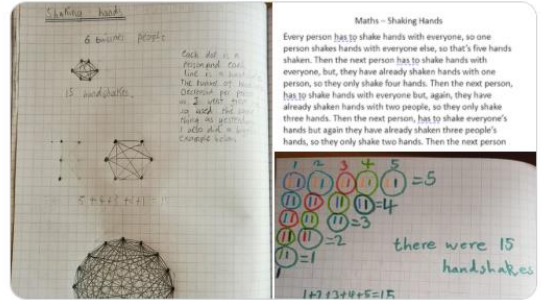 Shaking hands
6 people
Each dit is a
person and each
line is a
15 handshakes.
as I went
so used the same
thing as yesterday
I also did a
example below
5 + 4 + 3
Maths – Shaking Hands
Every person has to shake hands with everyone, so one
person shakes hands with everyone else, so that's five hands
shaken. Then the next person has to shake hands with
everyone, but, they have already shaken hands with one
person, so they only shake four hands. Then the next person,
has to shake hands with everyone but, again, they have
already shaken hands with two people, so they only shake
three hands. Then the next person, has to shake everyone's
hands but again they have already shaken three people's
hands, so they only shake two hands. Then the next person
1 2 3 4 5
=5
=4
=3
=2
=1
there were 15
handshakes
1+2+3+4+5=15